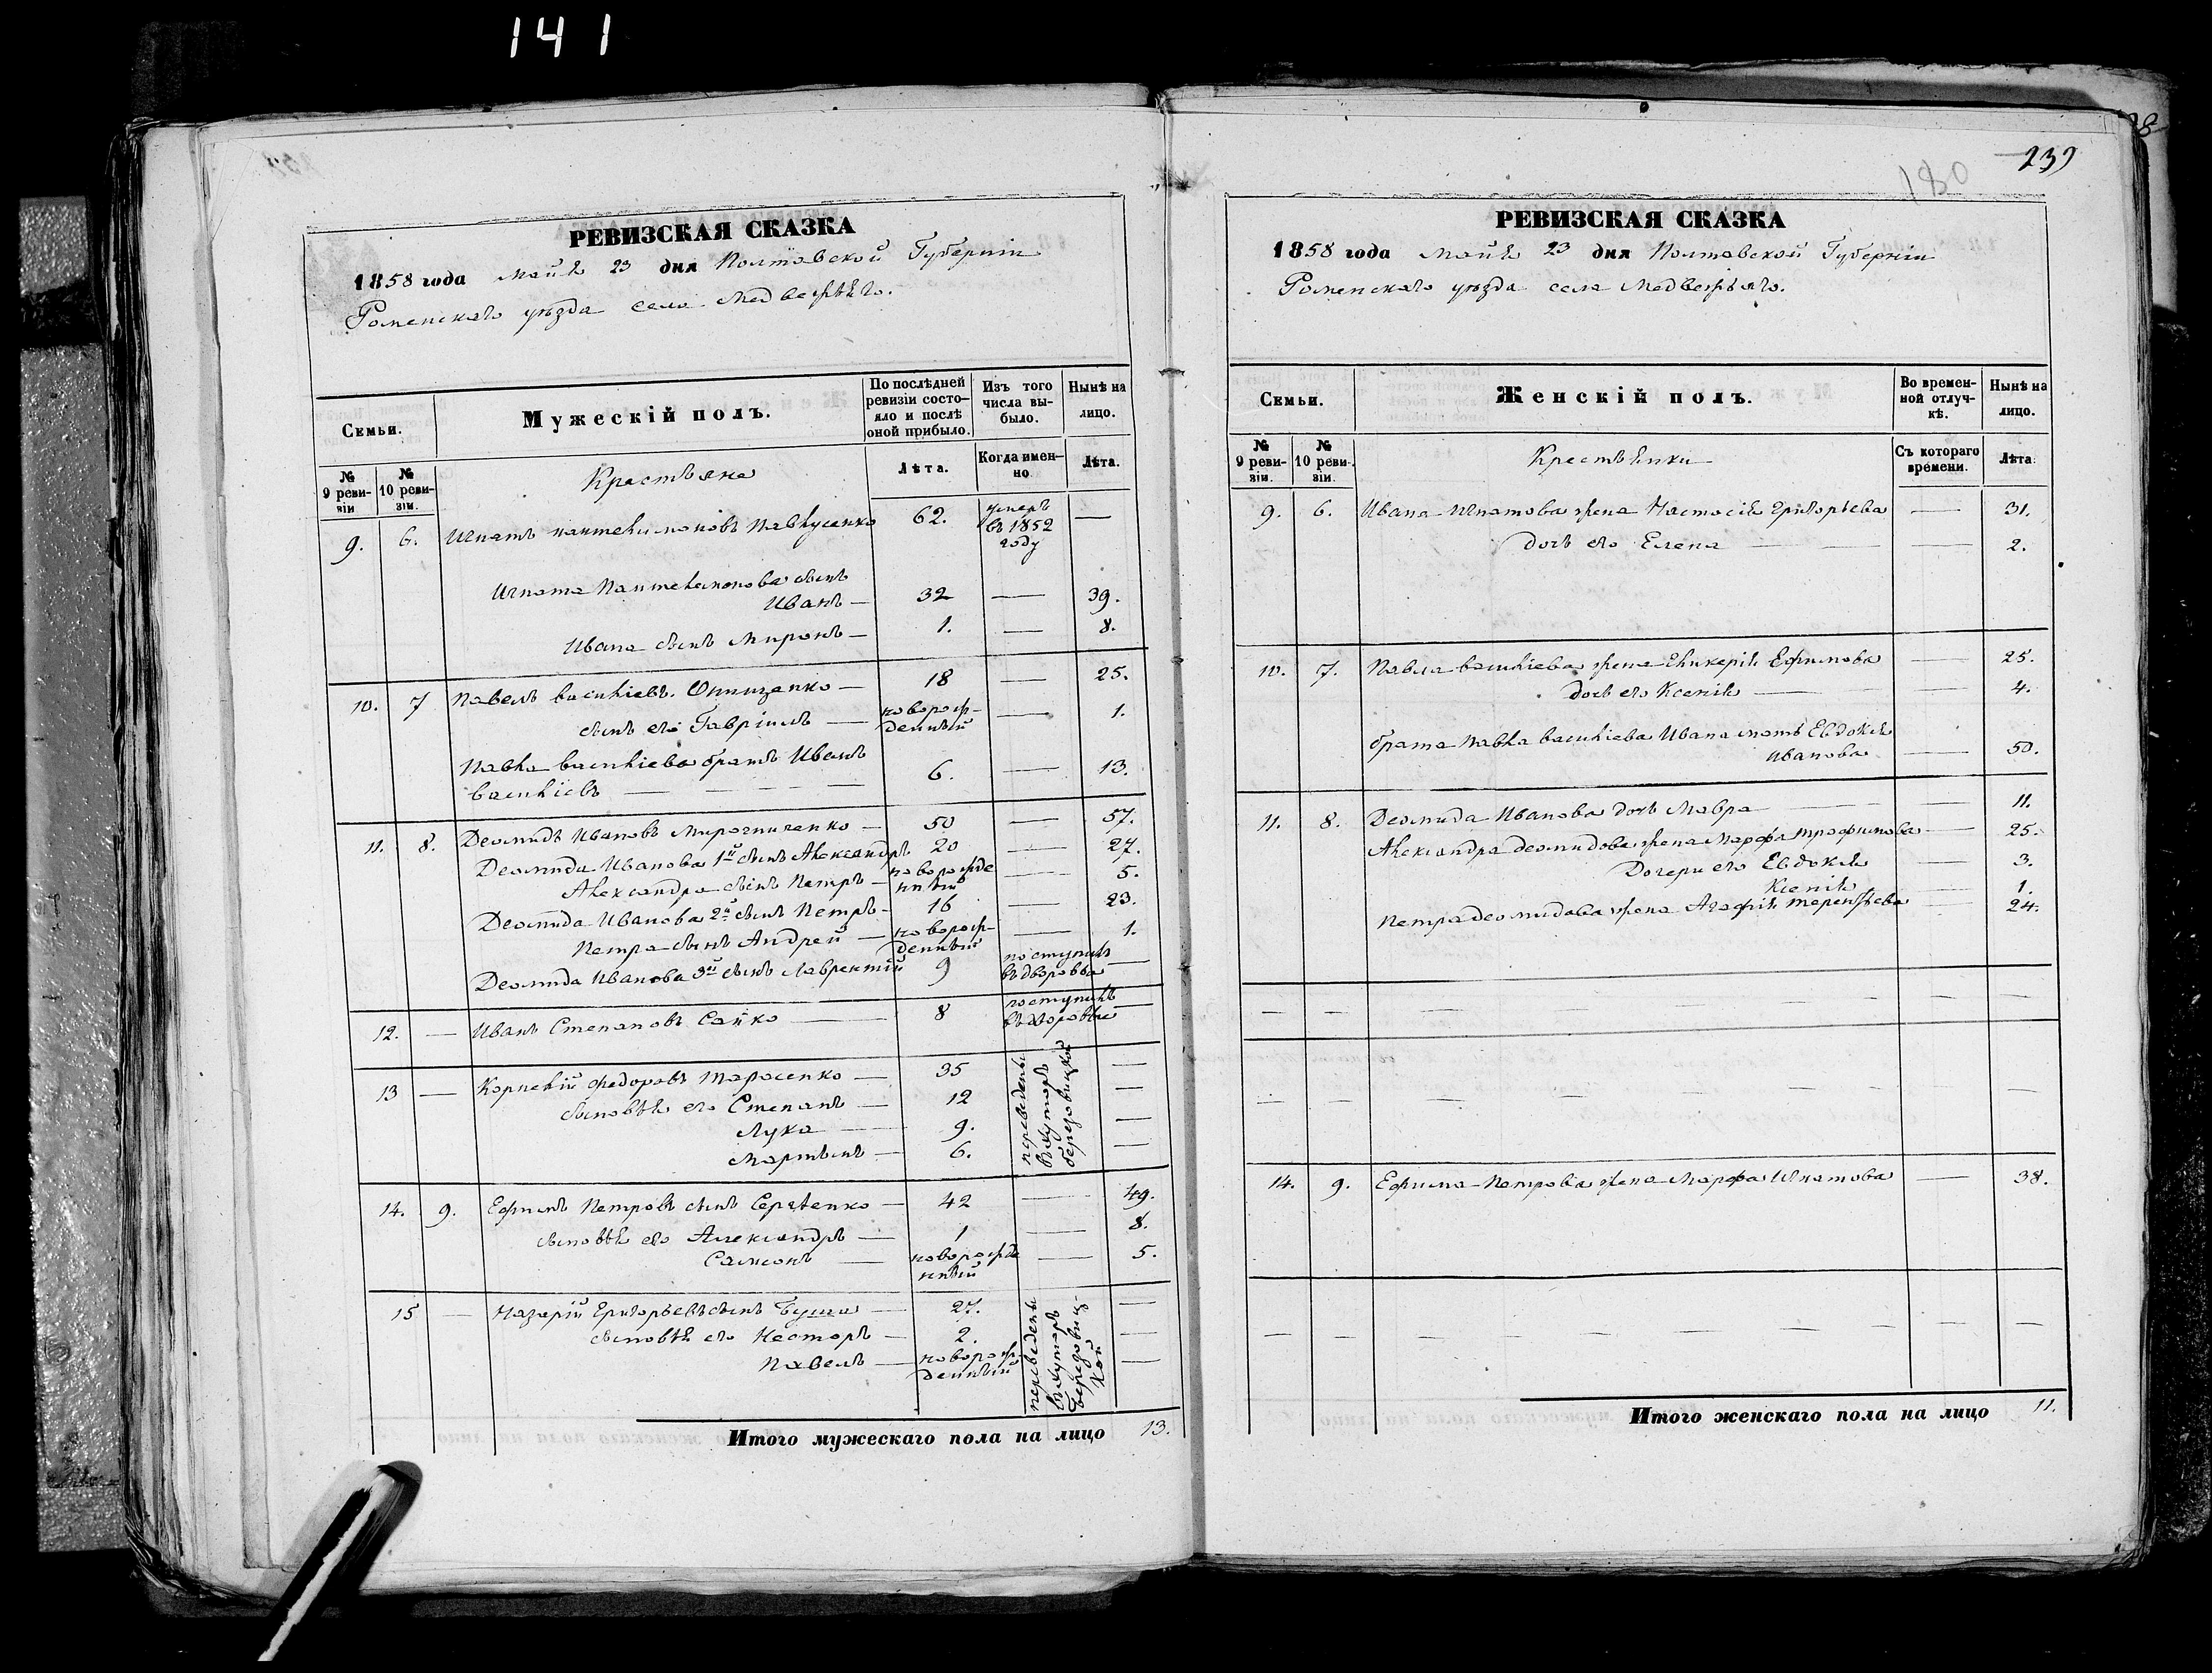 141
239
180
РЕВИЗСКАЯ СКАЗКА
1858 года Маія 23 дня Полтавской Губерніи
Роменскаго уѣзда села Медвежьяго.
Семьи.
Мужескій полъ.
По послѣдней ревизіи состояло и послѣ оной прибыло.
Изъ того числа выбыло.
Нынѣ на лицо.
№ 9 ревизіи
№ 10 ревизіи.
Крестьяне
Лѣта.
Когда именно
Лѣта.
9. 6. Игнатъ Пантелимоновъ Павлусенко 62. умеръ въ 1852 году —
Игната Пантелимонова сынъ
Иванъ — 32 — 39.
Ивана сынъ Миронъ — 1. — 8.
10. 7 Павелъ Василіевъ Онищенко — 18 — 25.
сынъ его Гавріилъ — новорожденный — 1.
Павла Василіева братъ Иванъ
Василіевъ — 6. — 13.
11. 8. Деомидъ Ивановъ Мирогниченко — 50 — 57.
Деомида Иванова 1й сынъ Александръ 20 — 27.
Александра сынъ Петръ — новорожденный — 5.
Деомида Иванова 2й сынъ Петръ — 16 — 23.
Петра сынъ Андрей — новорожденный — 1.
Деомида Иванова 3й сынъ Лаврентій 9 поступилъ въ дворовые —
12. — Иванъ Степановъ Сайко — 8 поступилъ въ дворовые —
13 — Корнелій Федоровъ Тарасенко — 35 переведены въ хуторъ Березовицкой —
сыновья его Степанъ — 12 —
Лука — 9. —
Мартынъ — 6. —
14. 9. Ефимъ Петровъ сынъ Сергѣенко — 42 — 49.
сыновья его Александръ — 1 — 8.
Самсонъ — новорожденный — 5.
15 — Назарій Григорьевъ сынъ Буша — 27. переведены въ хуторъ Березовицкой —
сыновья его Несторъ — 2. —
Павелъ — новорожденный —
Итого мужескаго пола на лицо 13.
РЕВИЗСКАЯ СКАЗКА
1858 года Маія 23 дня Полтавской Губерніи
Роменскаго уѣзда села Медвежьяго.
Семьи.
Женскій полъ.
Во временной отлучкѣ.
Нынѣ на лицо.
№ 9 ревизіи.
№ 10 ревизіи.
Крестьянки
Съ котораго времени.
Лѣта
9. 6. Ивана Игнатова жена Настасія Григорьева — 31.
дочь его Елена — 2.
10. 7. Павла Василіева жена Гликерія Ефимова — 25.
дочь его Ксенія — 4.
брата Павла Василіева Ивана мать Евдокія
Иванова — 50.
11. 8. Деомида Иванова дочь Мавра — 11.
Александра Деомидова жена Марфа Трофимова — 25.
Дочери его Евдокія — 3.
Ксенія — 1.
Петра Деомидова жена Агафія Терентьева — 24.
14. 9. Ефима Петрова жена Марфа Игнатова — 38.
Итого женскаго пола на лицо 11.